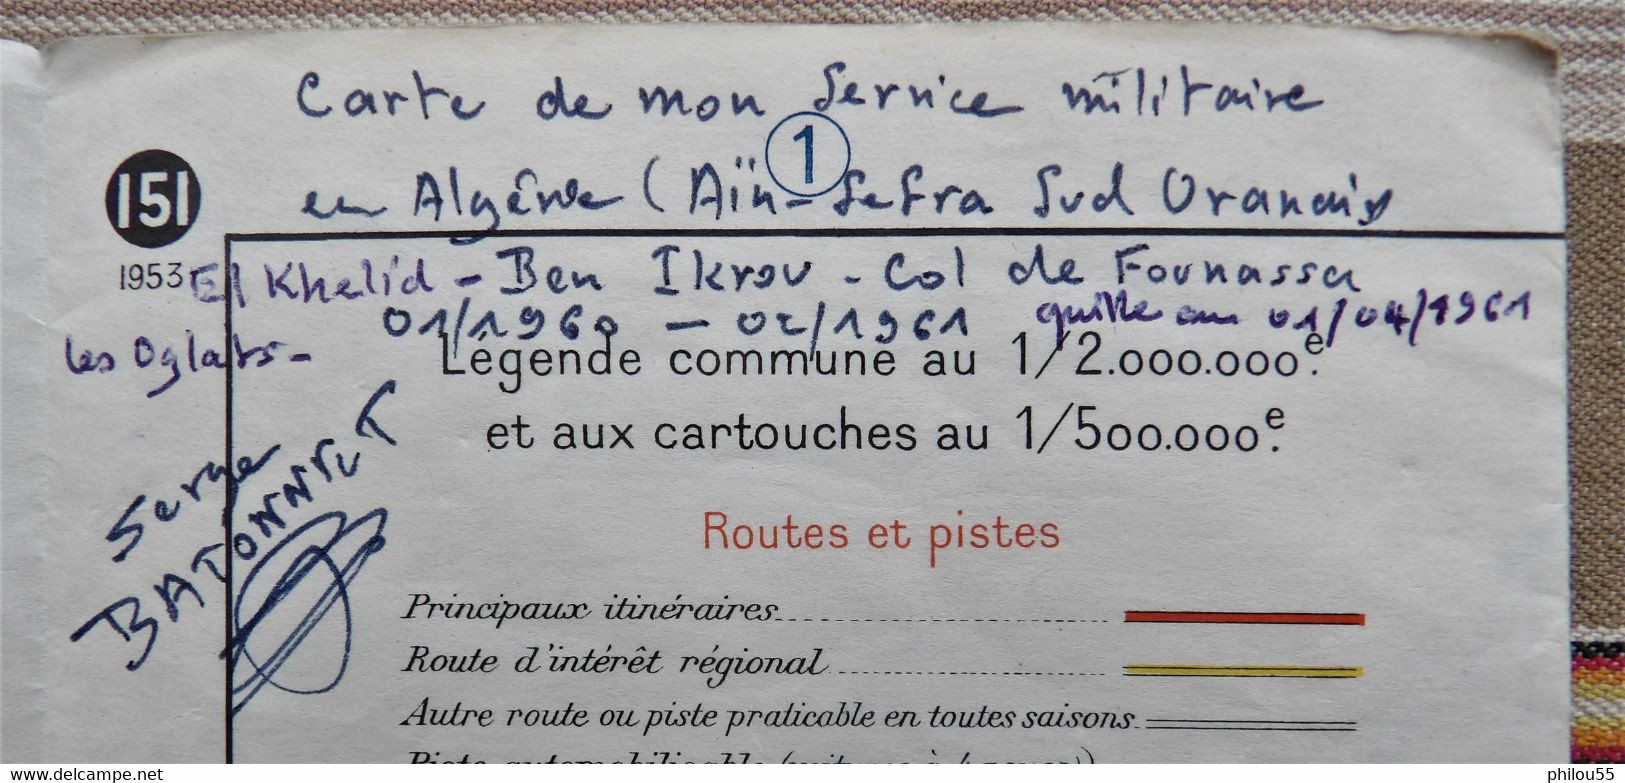 Carte de mon Service militaire
1
en Algérie (Aïn-Sefra Sud Oranais
151
1953
El Khelid - Ben Ikrou - Col de Founassa
01/1960 - 02/1961 quille au 01/04/1961
les Oglats -
Légende commune au 1/2.000.000e.
et aux cartouches au 1/500.000e.
Serge
BATONNET
Routes et pistes
Principaux itinéraires
Route d'intérêt régional
Autre route ou piste praticable en toutes saisons
Piste automobilisable (voitures à 4 roues)
www.delcampe.net
philou55